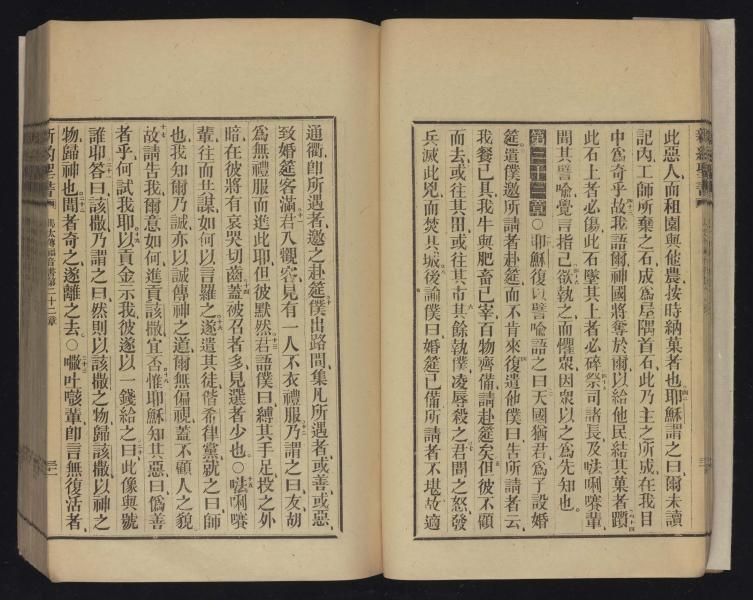 此惡人而租園與他農按時納菓者也耶穌謂之曰爾未讀
記內工師所棄之石成爲屋隅首石此乃主之所成在我目
中爲奇乎故我語爾神國將奪於爾以給他民結其菓者躓
此石上者必傷此石墜其上者必碎祭司諸長及㗲唎㘔輩
聞其譬喩覺言指己欲執之而懼衆因衆以之爲先知也
第二十二章○耶穌復以譬喩語之曰天國猶君爲子設婚
筵遣僕邀所請者赴筵而不肯來復遣他僕曰告所請者云
我餐已具我牛與肥畜已宰百物齊備請赴筵矣但彼不顧
而去或往其田或往其市其餘執僕凌辱殺之君聞之怒發
兵滅此兇而焚其城後諭僕曰婚筵已備所請者不堪故適
通衢卽所遇者邀之赴筵僕出路間集凡所遇者或善或惡
致婚筵客滿君入觀客見有一人不衣禮服乃謂之曰友胡
爲無禮服而進此耶但彼默然君語僕曰縛其手足投之外
暗在彼將有哀哭切齒蓋被召者多見選者少也○㗲唎㘔
輩往而共謀如何以言羅之遂遣其徒偕希律黨就之曰師
也我知爾乃誠亦以誠傳神之道爾無偏視蓋不顧人之貌
故請告我爾意如何進貢該撒宜否惟耶穌知其惡曰僞善
者乎何試我耶以貢金示我彼遂以一錢給之曰此像與號
誰耶答曰該撒乃謂之曰然則以該撒之物歸該撒以神之
物歸神也聞者奇之遂離之去○㘔吐㗒輩卽言無復活者
新約聖書 馬太傳福音書第二十二章